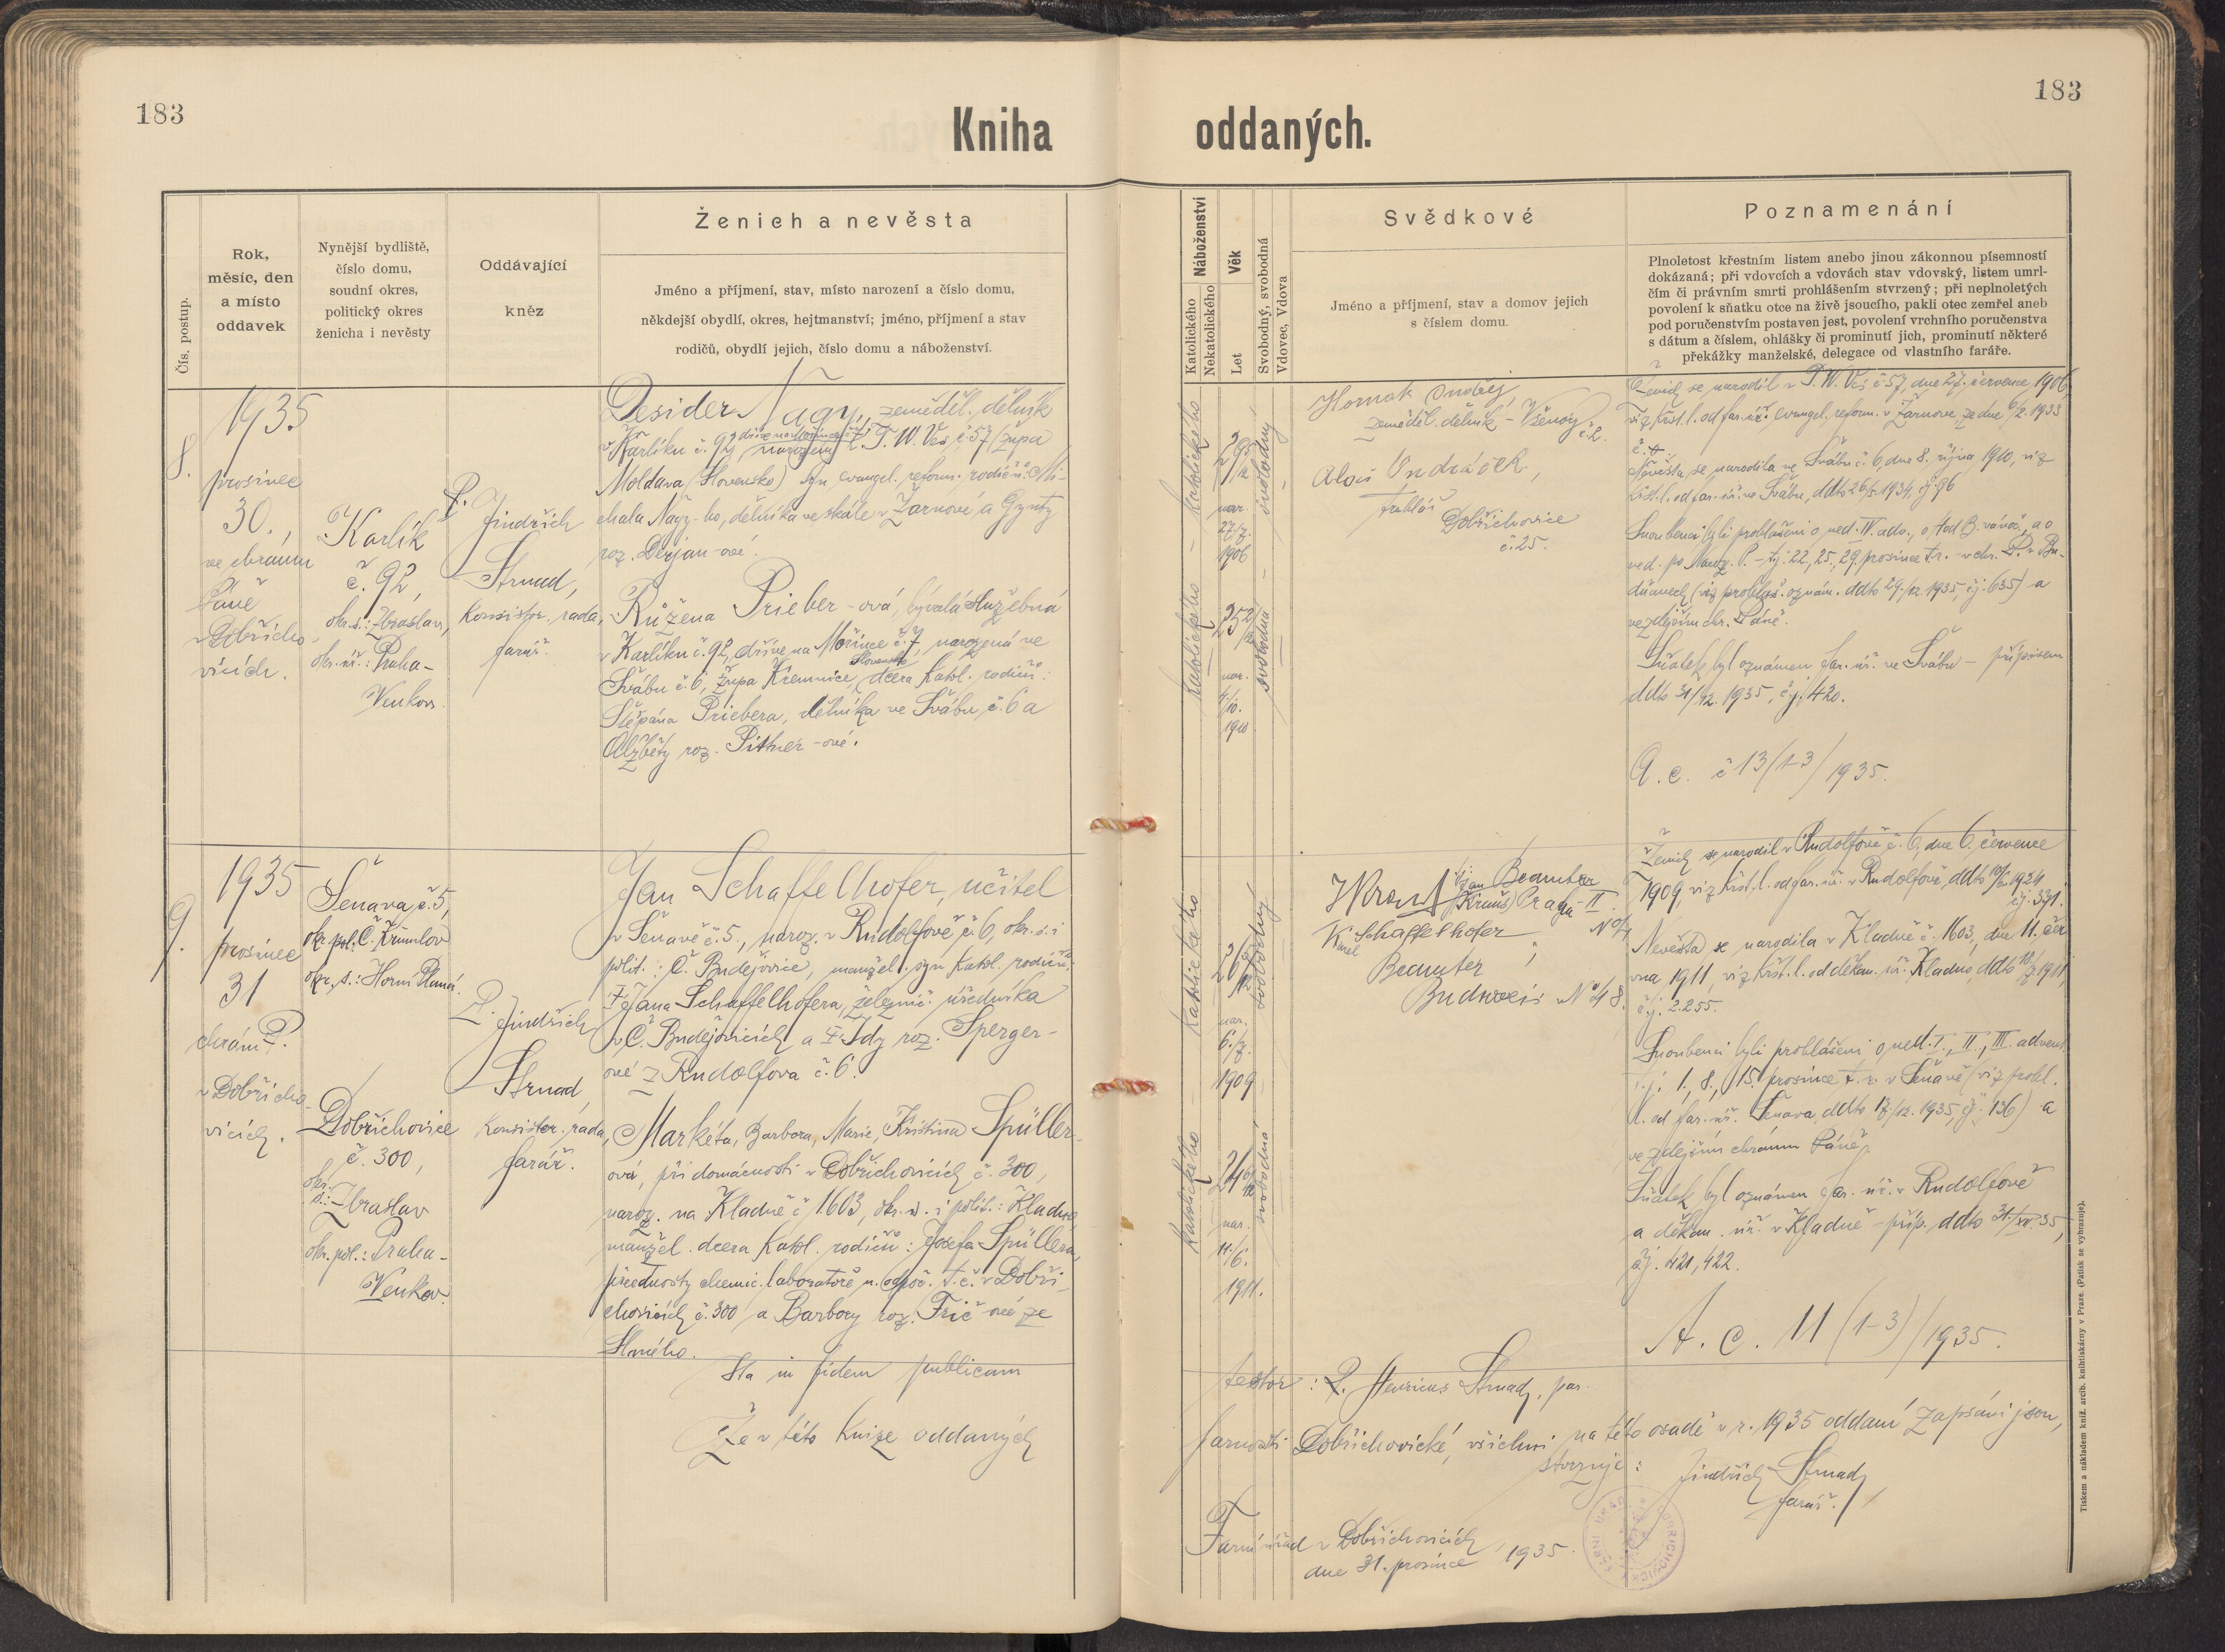 183
183
Kniha oddaných.
Čís. postup.
Rok,
měsíc, den
a místo
oddavek
Nynější bydliště,
číslo domu,
soudní okres,
politický okres
ženicha i nevěsty
Oddávající
kněz
Ženich a nevěsta
Jméno a příjmení, stav, místo narození a číslo domu,
někdejší obydlí, okres, hejtmanství; jméno, příjmení a stav
rodičů, obydlí jejich, číslo domu a náboženství.
Náboženství
Katolického
Nekatolického
Věk
Let
Svobodný, svobodná
Vdovec, Vdova
Svědkové
Jméno a příjmení, stav a domov jejich
s číslem domu.
Poznamenání
Plnoletost křestním listem anebo jinou zákonnou písemností
dokázaná; při vdovcích a vdovách stav vdovský, listem umrl-
čím či právním smrti prohlášením stvrzený; při neplnoletých
povolení k sňatku otce na živě jsoucího, pakli otec zemřel aneb
pod poručenstvím postaven jest, povolení vrchního poručenstva
s dátum a číslem, ohlášky či prominutí jich, prominutí některé
překážky manželské, delegace od vlastního faráře.
8.
1935
prosinec
30.
ve chrámu
Páně
v Dobřicho-
vicích.
Karlík
č. 92,
okr. s.: Zbraslav,
okr. úř.: Praha-
Venkov.
P.
Jindřich
Strnad,
konsistor. rada,
farář.
Desider Nagy, zeměděl. dělník
v Karlíku č. 92, T. W. Ves, č. 57 (župa
Moldava (Slovensko) syn evangel. reform. rodičů: Mi-
chala Nagy-ho, dělníka ve skále v Žarnově a Gynty
roz. Derjan-ové.
Růžena Prieber-ová, bývalá služebná
v Karlíku č. 92, dříve na Mořince č. 7, narozená ve
Slovensko
Švábu č. 6, župa Kremnice, dcera katol. rodičů:
Štěpána Priebera, dělníka ve Švábu, č. 6 a
Alžběty roz. Pittner-ové.
katolického
katolického
nar.
27./7.
1906
svobodný
25 2/12
nar.
1910
svobodná
Hornak Ondřej,
zeměděl. dělník - Všenory
č. 2.
Alois Ondráček,
truhlář
Dobřichovice
č. 25.
Ženich se narodil v T. W. Vsi č 57, dne 27. července 1906,
viz křst. l. od far. úř. evangel. reform. v Žarnove, ze dne 6/2. 1933
Nevěsta se narodila ve Švábu č. 6, dne 8. října 1910, viz
křst. l. od far. úř. ve Švábu, ddto 26/5. 1934, čj 96
Snoubenci byli prohlášeni o ned. IV. adv., o hod B. vánoč., a o
ned. po Naroz. P. - tj. 22., 25., 29. prosince t. r. - v chr. P. v Bu-
dňanech (viz prohláš. oznám. ddto 29./12 1935, čj: 635) a
ve zdejším chr. Páně.
Sňatek byl oznámen far. úř. ve Švábu - přípisem
ddto 31/12. 1935, čj. 420.
A. c. č 13/1-3/1935.
9.
1935
prosinec
31
chrám P.
v Dobřicho-
vicích.
Šenava č. 5,
okr. pol. Č. Krumlov
okr. s.: Horní Planá.
Dobřichovice
č. 300,
okr.
s.: Zbraslav
okr. pol.: Praha-
Venkov.
P. Jindřich
Strnad,
konsistor. rada,
farář.
Jan Schaffelhofer, učitel
v Šenavě č. 5., naroz. v Rudolfově č. 6, okr. s. i
polit.: Č. Budějovice, manžel. syn katol. rodičů:
† Jana Schaffelhofera, železnič. úředníka
v Č. Budějovicích a † Idy roz. Sperger-
ové z Rudolfova č. 6.
Markéta, Barbora, Marie, Kristina Spüller-
ová, při domácnosti v Dobřichovicích č. 300,
naroz. na Kladně č 1603, okr. s. i polit.: Kladno
manžel. dcera katol. rodičů: Josefa Spüllera,
přednosty chemic. laboratoře n. odpoč. t. č. v Dobři-
chovicích č. 300 a Barbory roz. Frič-ové ze
Slaného.
katolického
katolického
nar.
6./7.
1909
svobodný
24 6/12
nar.
11./6.
1911.
svobodná
Jan Beamter
(Kraus) Praga-II.
Karel Schaffelhofer
Beamter
Budweis No 48.
Ženich se narodil v Rudolfově č. 6, dne 6. července
1909, viz křst. l. od far. úř. v Rudolfově, ddto 1924
čj. 331.
Nevěsta se narodila v Kladně č. 1603, dne 11. čer-
vna 1911, viz křst. l. od děkan. úř. Kladno, ddto 1911,
čj. 2.255.
Snoubenci byli prohlášeni o ned. I., II., III. advent.
t. j. 1., 8., 15. prosince t. r. v Šenavě (viz prohl.
l. od far. úř. Šenava, ddto 17/12. 1935, čj. 136) a
ve zdejším chrámu Páně.
Sňatek byl oznámen far. úř. v Rudolfově
a děkan. úř. v Kladně - příp. ddto 31./XII. 35,
čj. 421, 422.
A. c. 11 (1-3)/1935.
Ita in fidem publicam testor: P. Henricus Strnad, par.
Že v této knize oddaných farnosti Dobřichovické, všichni na této osadě v r. 1935 oddaní zapsáni jsou,
stvrzuje: Jindřich Strnad
farář.
Farní úřad v Dobřichovicích
dne 31. prosince 1935.
Tiskem a nákladem kníž. arcib. knihtiskárny v Praze. (Patisk se vyhrazuje).